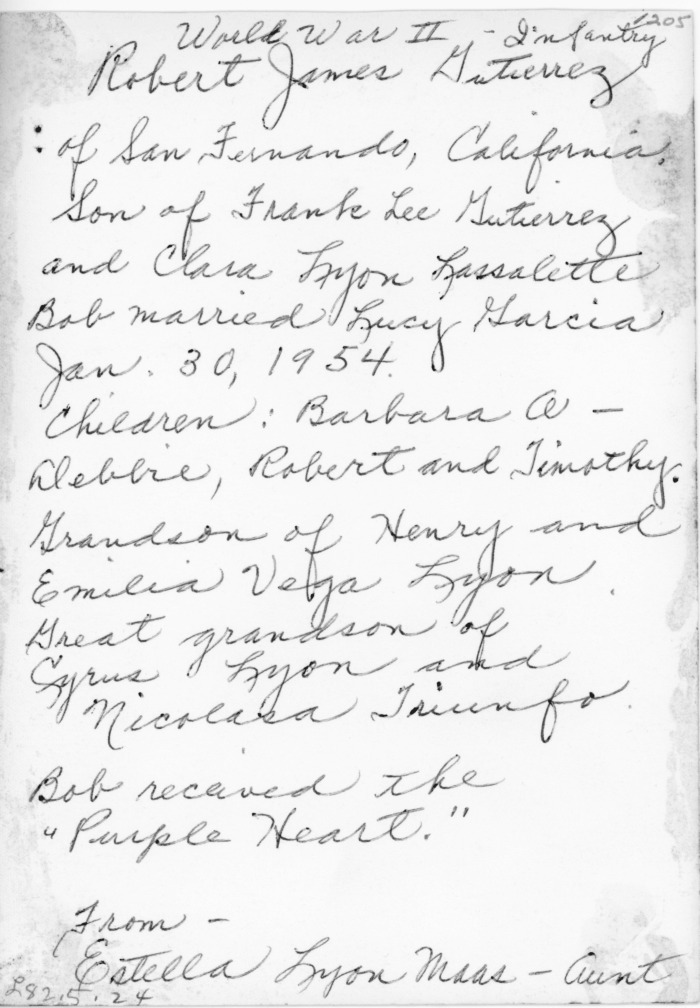 1205
World War II - Infantry
Robert James Gutierrez
of San Fernando, California.
Son of Frank Lee Gutierrez
and Clara Lyon Lassalette
Bob married Lucy Garcia
Jan. 30, 1954.
Children: Barbara A -
Debbie, Robert and Timothy.
Grandson of Henry and
Emilia Vega Lyon.
Great grandson of
Cyrus Lyon and
Nicolasa Triunfo.
Bob received the
"Purple Heart."
From -
Estella Lyon Maas - Aunt
L82.5.24